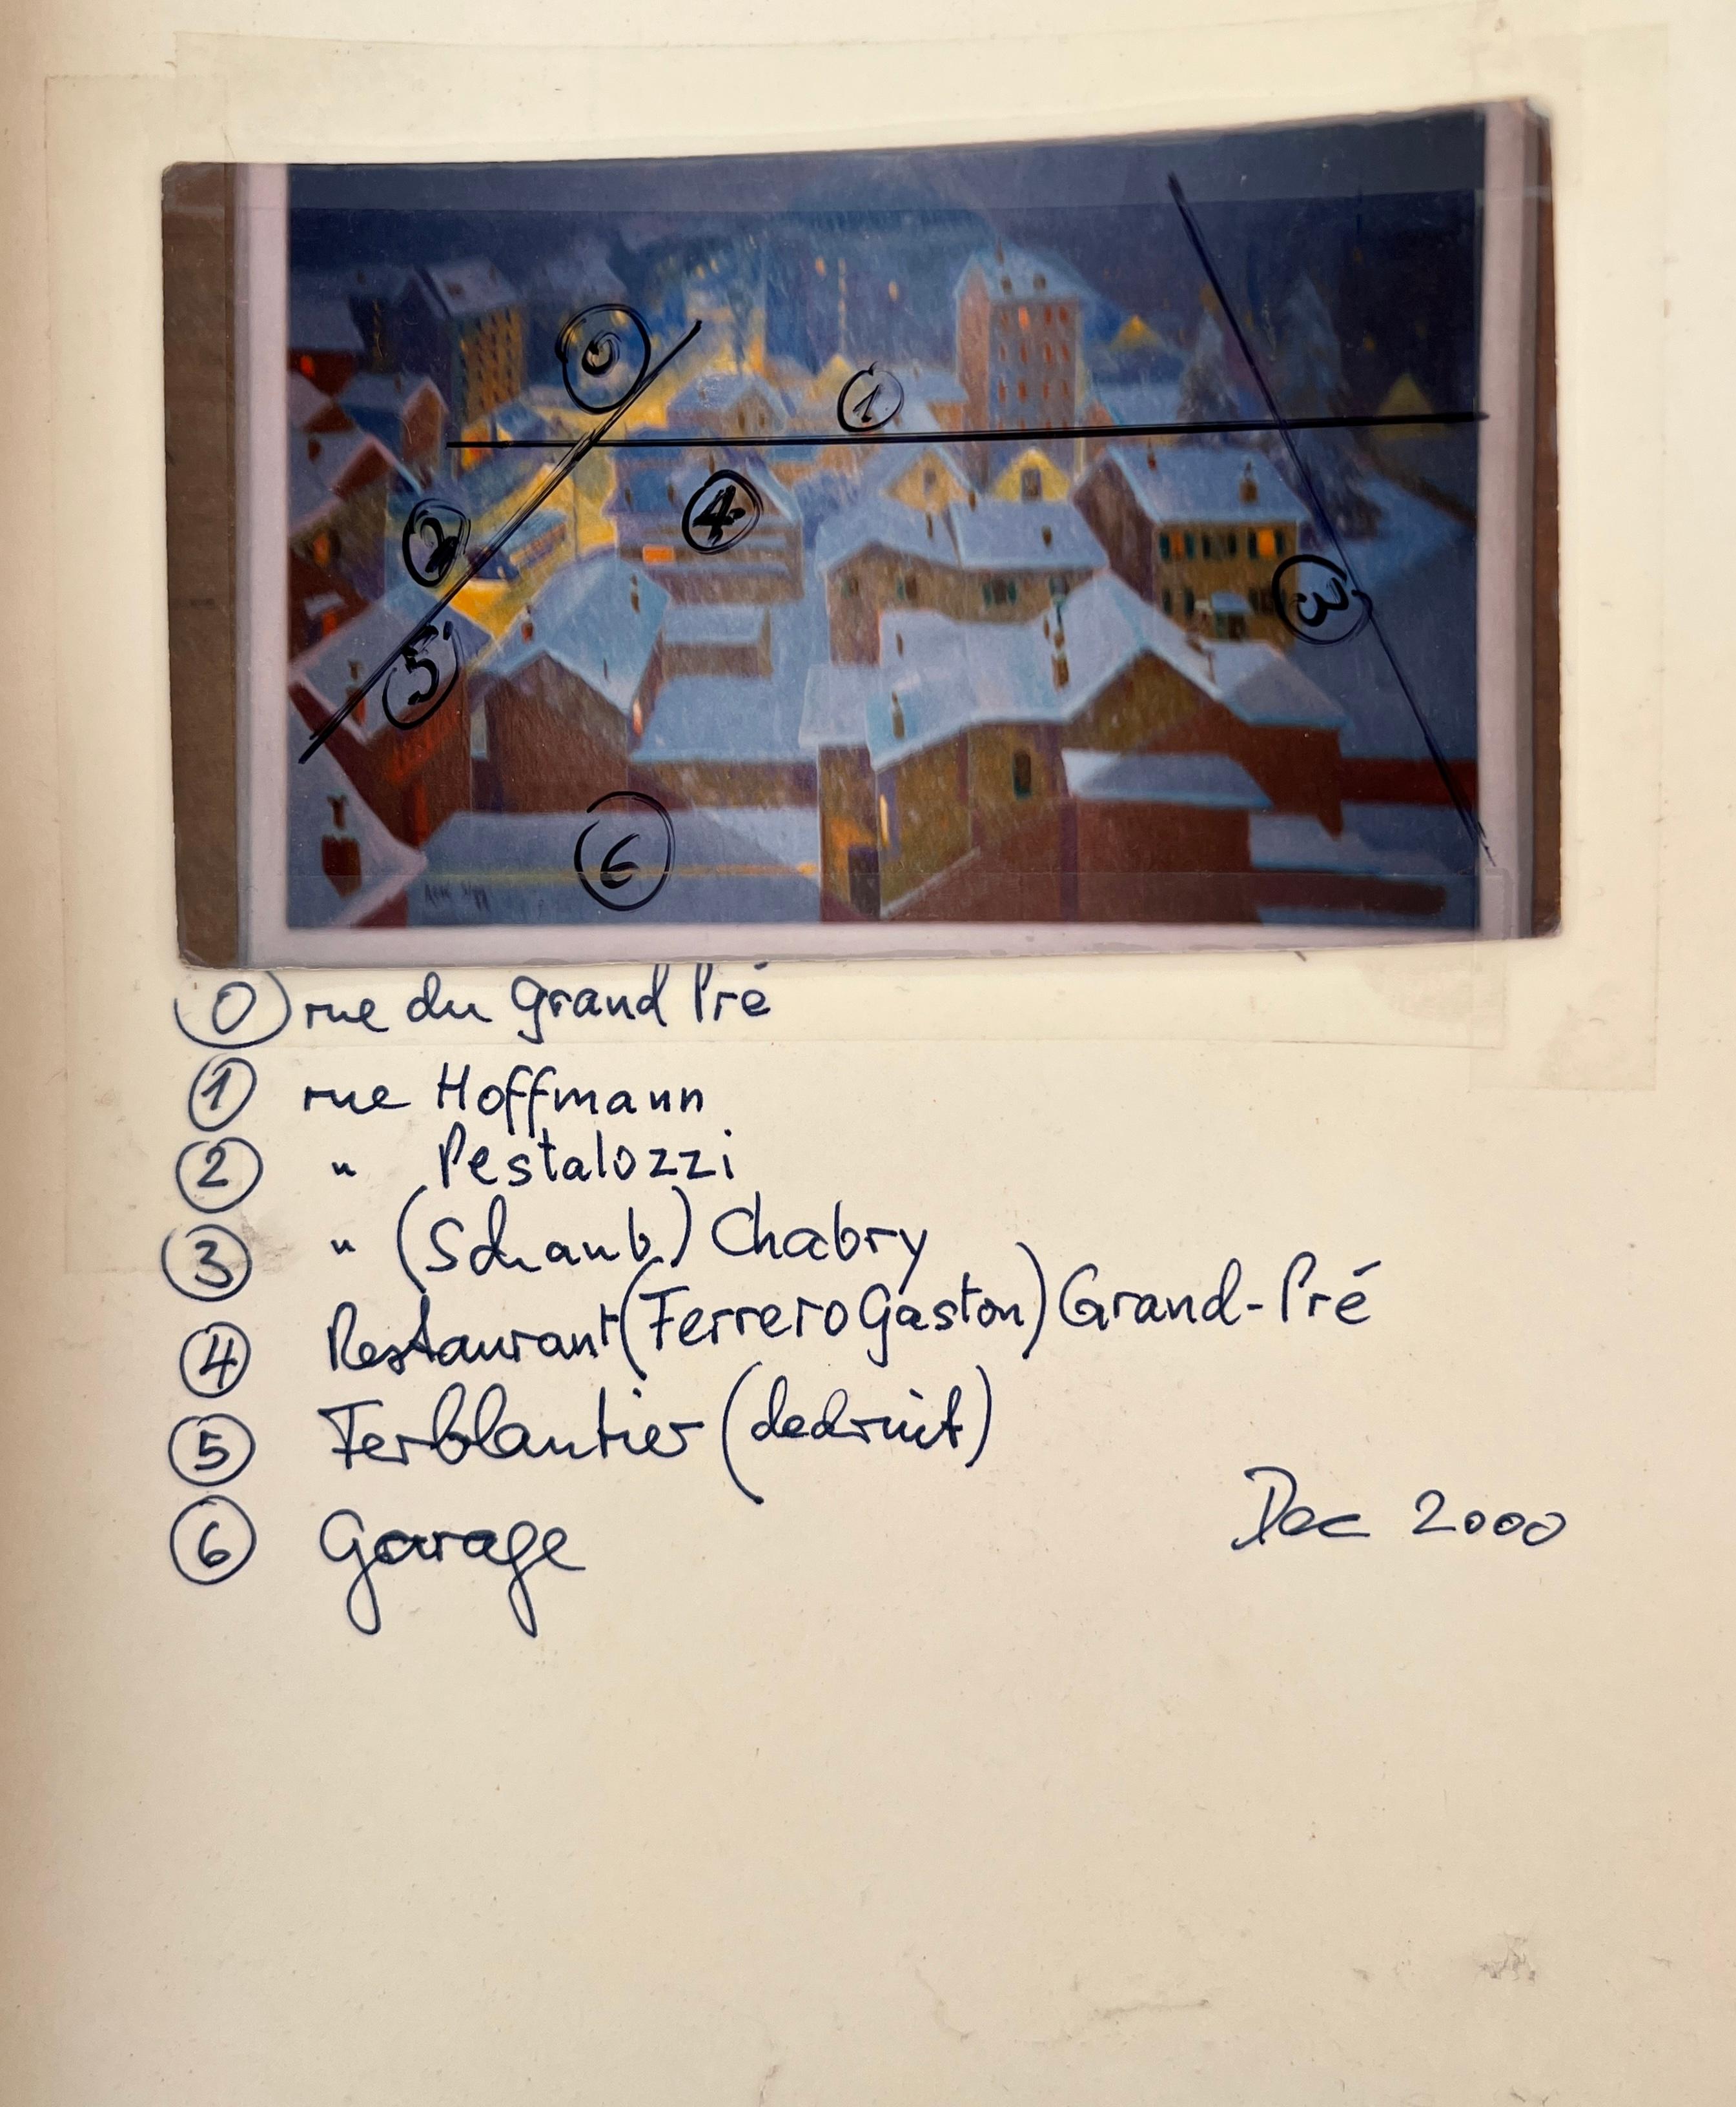 0
1
2
4
3
5
6
0 rue du grand Pré
1 rue Hoffmann
2 " Pestalozzi
3 " (Schaub) Chabry
4 Restaurant (Ferrero Gaston) Grand-Pré
5 Ferblantier (dedruit)
6 Garage
Dec 2000